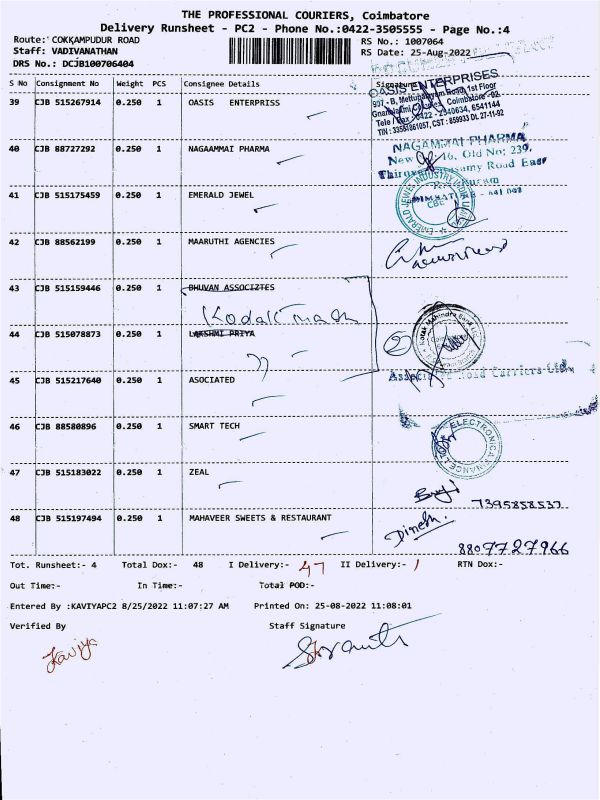 THE PROFESSIONAL COURIERS, Coimbatore
Delivery Runsheet - PC2 - Phone No.:0422-3505555 - Page No.:4
Route: COKKAMPUDUR ROAD
RS No.: 1007064
Staff: VADIVANATHAN
RS Date: 25-Aug-2022
DRS No.: DCJB100706404
S No Consignment No Weight PCS Consignee Details Signature
39 CJB 515267914 0.250 1 OASIS ENTERPRISS
OASIS ENTERPRISES
907 - B, Mettupalayam Road, 1st Floor
Coimbatore - 02
0422 - 2540634, 6541144
CST : 859933 DL 27-11-92
40 CJB 88727292 0.250 1 NAGAAMMAI PHARMA
NAGAMMAI PHARMA
New 16, Old No; 239,
Road East
41 CJB 515175459 0.250 1 EMERALD JEWEL
EMERALD JEWEL INDUSTRY INDIA
CBE
42 CJB 88562199 0.250 1 MAARUTHI AGENCIES
43 CJB 515159446 0.250 1 BHUVAN ASSOCIZTES
Kodak mah
44 CJB 515078873 0.250 1 LAKSHMI PRIYA
2
Kotak Mahindra Bank
45 CJB 515217640 0.250 1 ASOCIATED
Associated Road Carriers Ltd.
46 CJB 88580896 0.250 1 SMART TECH
ELECTRONICA FINANCE
47 CJB 515183022 0.250 1 ZEAL
7395858537
48 CJB 515197494 0.250 1 MAHAVEER SWEETS & RESTAURANT
Dinesh.
8807727966
Tot. Runsheet:- 4 Total Dox:- 48 I Delivery:- 47 II Delivery:- 1 RTN Dox:-
Out Time:- In Time:- Total POD:-
Entered By :KAVIYAPC2 8/25/2022 11:07:27 AM Printed On: 25-08-2022 11:08:01
Verified By Staff Signature
Kaviya